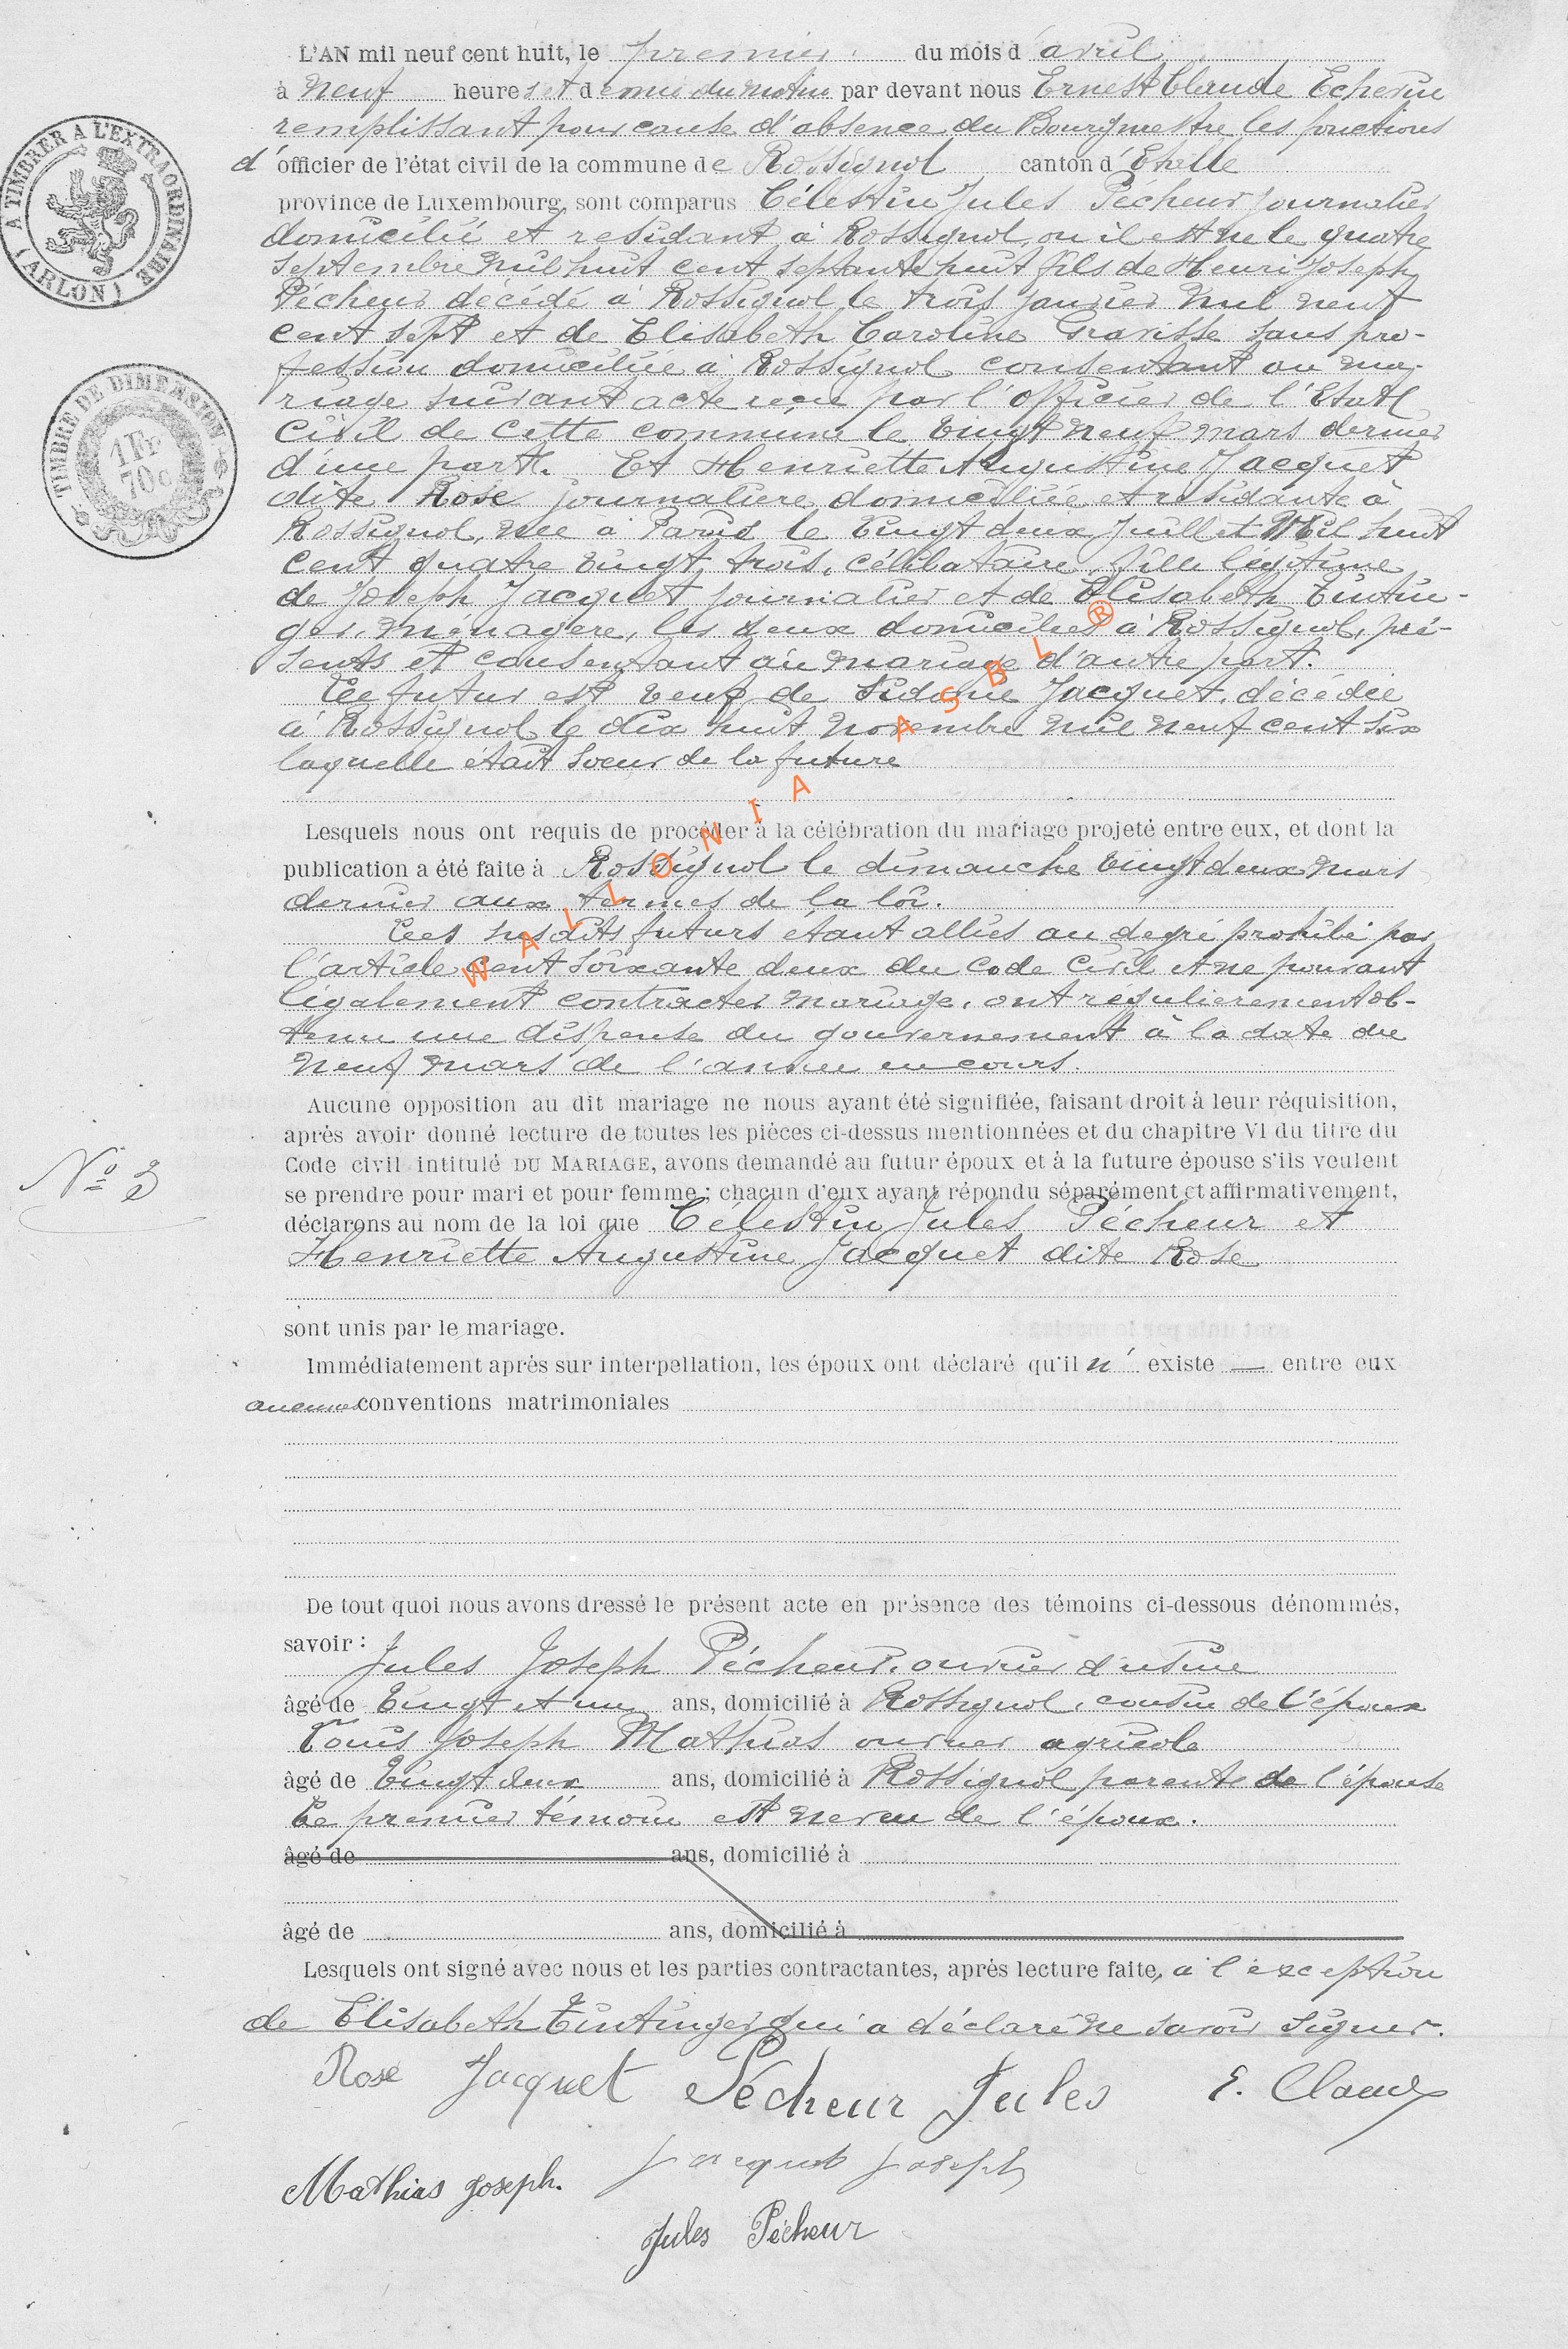 L'AN mil neuf cent huit, le premier du mois d'avril
à neuf heures et demie du matin par devant nous Ernest Claude Echevin
remplissant pour cause d'absence du Bourgmestre les fonctions
d'officier de l'état civil de la commune de Rossignol canton d'Etalle
province de Luxembourg, sont comparus Célestin Jules Pécheur journalier
domicilié et résidant à Rossignol, ou il est né le quatre
septembre mil huit cent septante huit fils de Henri Joseph
Pécheur décédé à Rossignol le trois janvier mil neuf
cent sept et de Elisabeth Caroline Gravisse sans pro-
fession domiciliée à Rossignol consentant au ma-
riage suivant acte reçu par l'officier de l'Etat
civil de cette commune le vingt neuf mars dernier
d'une part. Et Henriette Augustine Jacquet
dite Rose journalière domiciliée et résidante à
Rossignol, née à Paris le vingt deux juillet Mil huit
cent quatre vingt trois, célibataire, fille légitime
de Joseph Jacquet journalier et de Elisabeth Tintin-
ger, ménagère, les deux domiciliés à Rossignol, pré-
sents et consentant au mariage d'autre part.
Le futur est veuf de Sidonie Jacquet, décédée
à Rossignol le dix huit novembre mil neuf cent six
laquelle était soeur de la future
Lesquels nous ont requis de procéder à la célébration du mariage projeté entre eux, et dont la
publication a été faite à Rossignol le dimanche vingt deux mars
dernier aux termes de la loi.
Les susdits futurs étant alliés au degré prohibé par
l'article cent soixante deux du code civil et ne pouvant
légalement contracter mariage, ont régulierement ob-
tenu une dispense du gouvernement à la date du
neuf mars de l'année en cours.
Aucune opposition au dit mariage ne nous ayant été signifiée, faisant droit à leur réquisition,
après avoir donné lecture de toutes les pièces ci-dessus mentionnées et du chapitre VI du titre du
Code civil intitulé DU MARIAGE, avons demandé au futur époux et à la future épouse s'ils veulent
se prendre pour mari et pour femme ; chacun d'eux ayant répondu séparément et affirmativement,
déclarons au nom de la loi que Célestin Jules Pécheur et
Henriette Augustine Jacquet dite Rose
sont unis par le mariage.
Immédiatement après sur interpellation, les époux ont déclaré qu'il n'existe — entre eux
aucunes conventions matrimoniales
De tout quoi nous avons dressé le présent acte en présence des témoins ci-dessous dénommés,
savoir : Jules Joseph Pécheur, ouvrier d'usine
âgé de vingt et un ans, domicilié à Rossignol, cousin de l'époux
Louis Joseph Mathias ouvrier agricole
âgé de vingt deux ans, domicilié à Rossignol parents de l'épouse
Le premier témoin est neveu de l'époux.
âgé de ans, domicilié à
âgé de ans, domicilié à
Lesquels ont signé avec nous et les parties contractantes, après lecture faite, à l'exception
de Elisabeth Tintinger qui a déclaré ne savoir signer.
Rose Jacquet Pécheur Jules E. Claude
Mathias Joseph. Jacquet Joseph
Jules Pécheur
A TIMBRER A L'EXTRAORDINAIRE
(ARLON)
TIMBRE DE DIMENSION
1 Fr
70 c
N° 3
WALLONIA ASBL ®